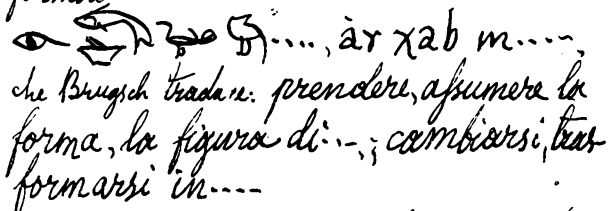 ...., àr χab m.....
che Brugsch traduce: prendere, assumere la
forma, la figura di...; cambiarsi, tras
formarsi in....